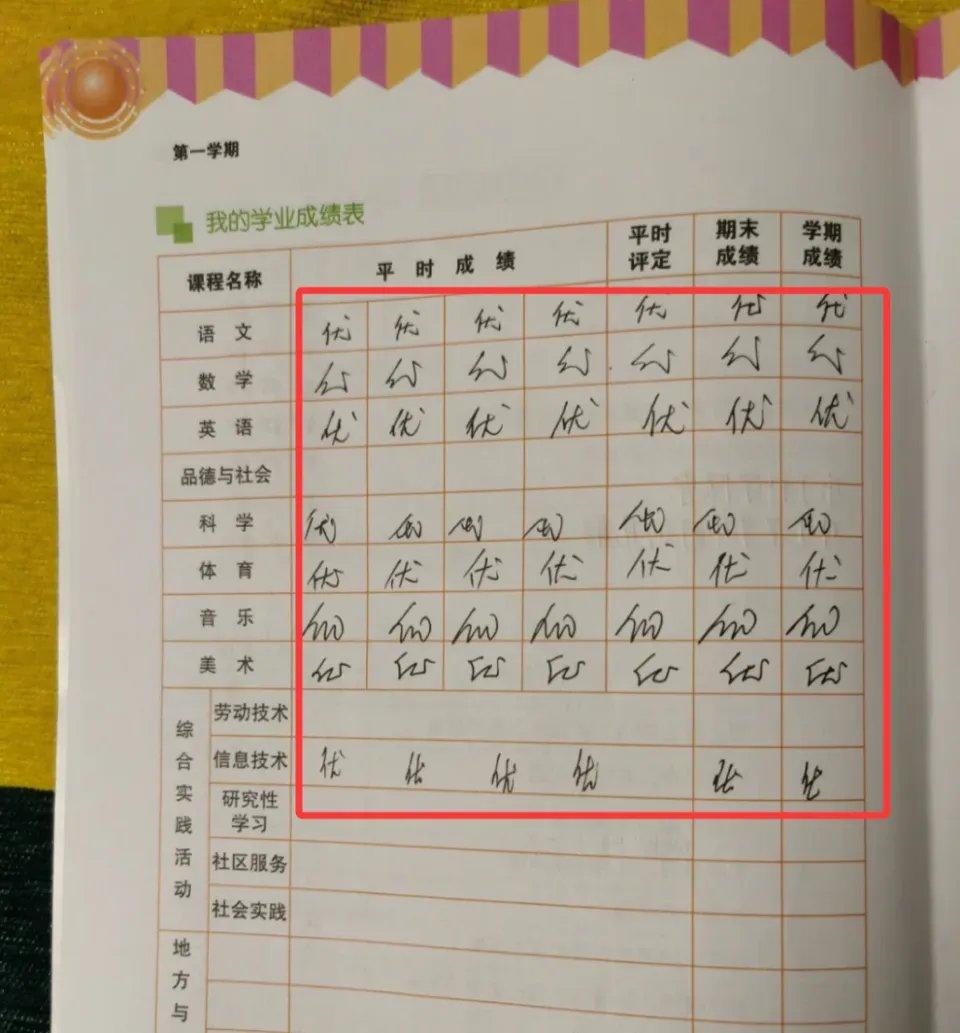 第一学期
我的学业成绩表
课程名称 平时成绩 平时评定 期末成绩 学期成绩
语文 优 优 优 优 优 优 优
数学 优 优 优 优 优 优 优
英语 优 优 优 优 优 优 优
品德与社会
科学 优 优 优 优 优 优 优
体育 优 优 优 优 优 优 优
音乐 优 优 优 优 优 优 优
美术 优 优 优 优 优 优 优
综合实践活动
劳动技术
信息技术 优 优 优 优 优 优
研究性学习
社区服务
社会实践
地方与